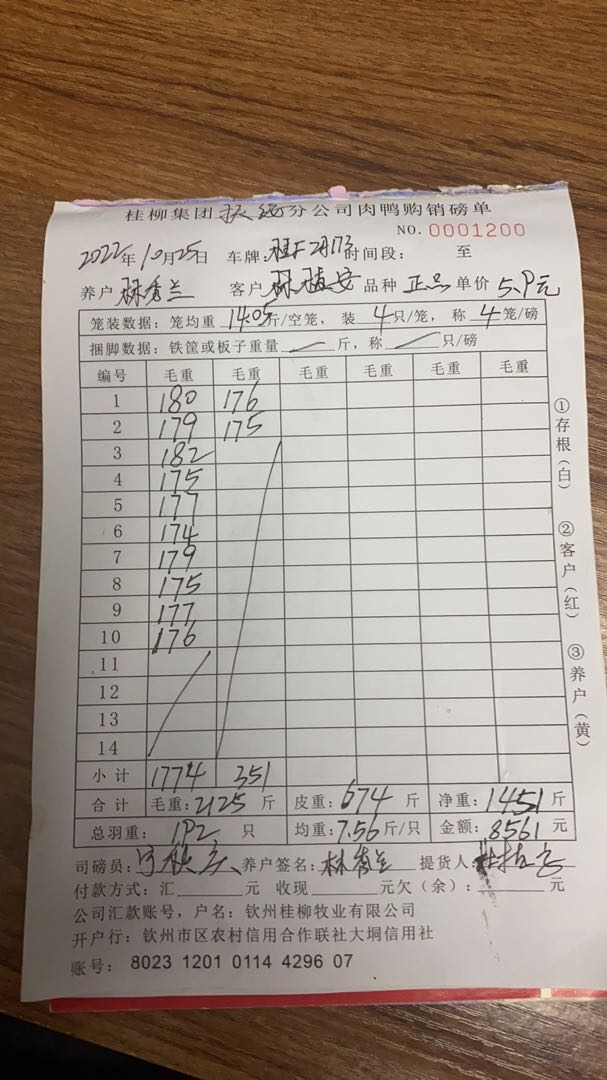 桂柳集团扶绥分公司肉鸭购销磅单
NO. 0001200
2022年10月25日 车牌: 时间段: 至
养户 林秀兰 客户 林植安 品种 正品 单价 5.9元
笼装数据: 笼均重 14.05斤/空笼, 装 4只/笼, 称 4笼/磅
捆脚数据: 铁筐或板子重量 斤, 称 只/磅
编号 毛重 毛重 毛重 毛重 毛重 毛重
1 180 176
2 179 175
3 182
4 175
5 177
6 174
7 179
8 175
9 177
10 176
11
12
13
14
小计 1774 351
合计 毛重: 2125 斤 皮重: 674 斤 净重: 1451 斤
总羽重: 192 只 均重: 7.56 斤/只 金额: 8561 元
司磅员: 养户签名: 林秀兰 提货人:
付款方式: 汇 元 收现 元欠(余): 元
公司汇款账号, 户名: 钦州桂柳牧业有限公司
开户行: 钦州市区农村信用合作联社大垌信用社
账号: 8023 1201 0114 4296 07
①存根(白)
②客户(红)
③养户(黄)